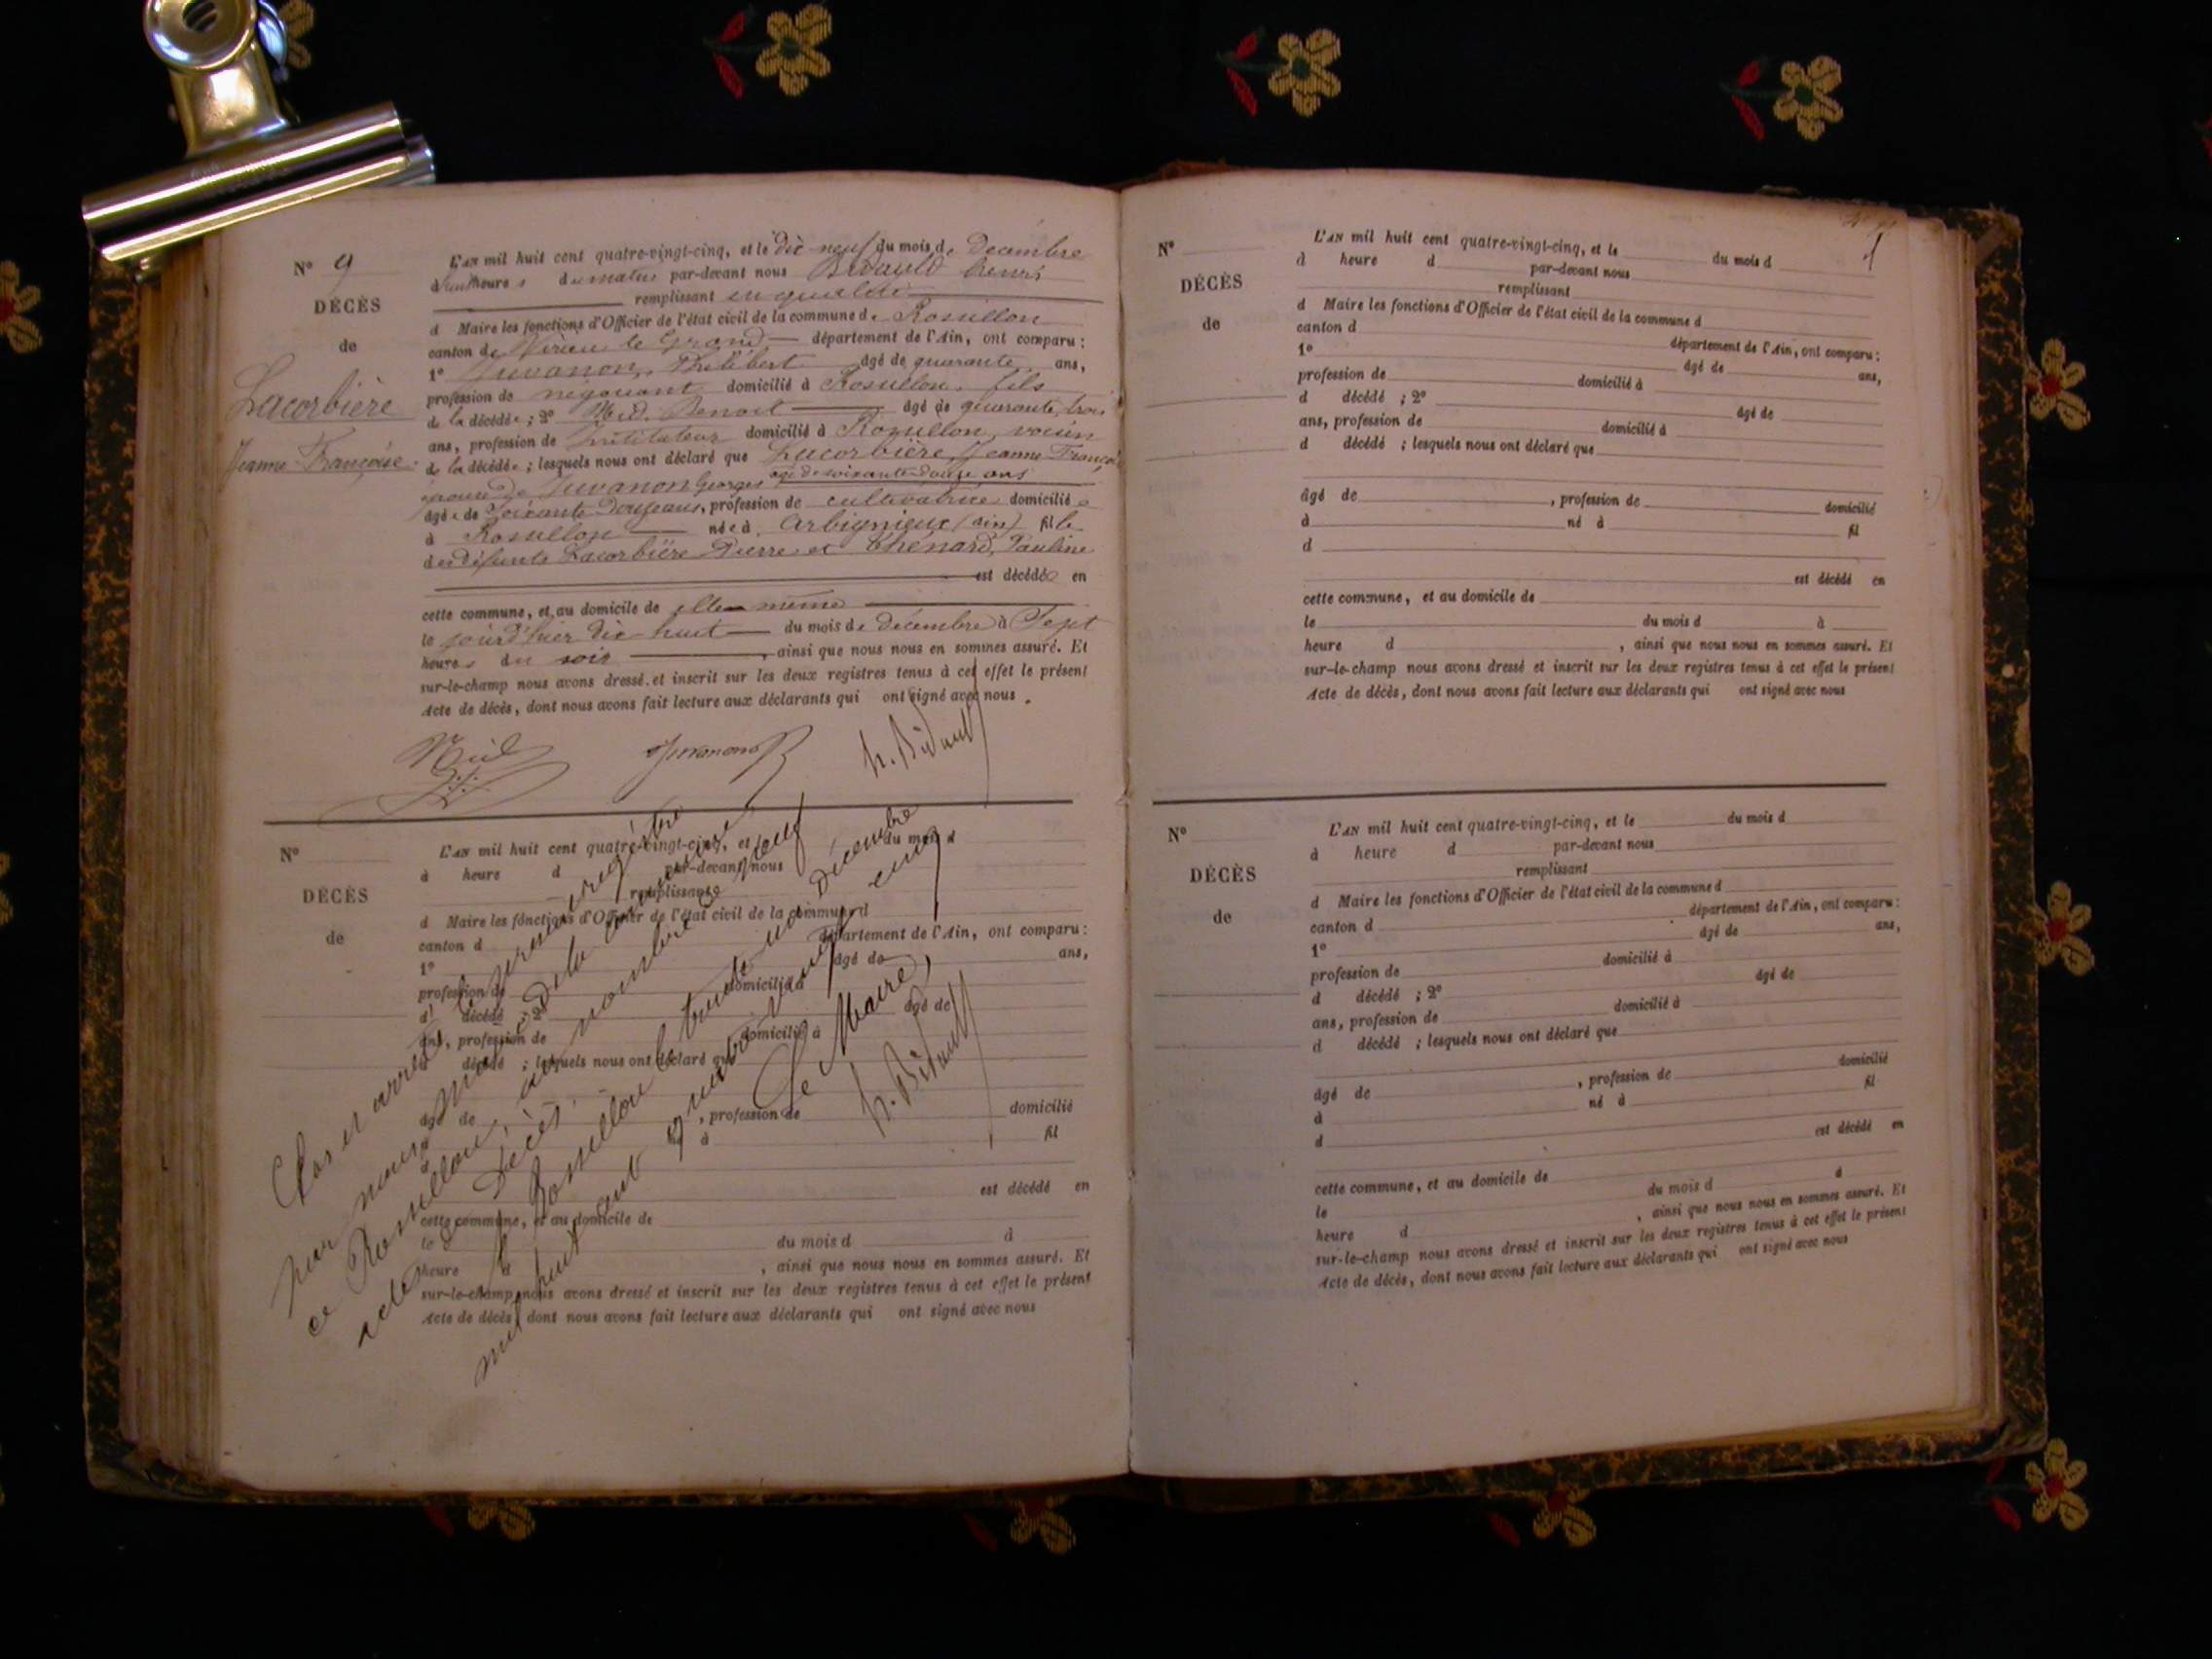 N° 9
DÉCÈS
de
Lacorbière
Jeanne Françoise
L'AN mil huit cent quatre-vingt-cinq, et le dix neuf du mois de Decembre
à huit heures du matin par-devant nous Bidauld henri
remplissant en qualité
d Maire les fonctions d'Officier de l'état civil de la commune de Rossillon
canton de Virieu le Grand département de l'Ain, ont comparu :
1° Juvanon, Philibert âgé de quarante ans,
profession de négociant domicilié à Rossillon, fils
de la décédée ; 2° Benoit âgé de quarante trois
ans, profession de instituteur domicilié à Rossillon, voisin
de la décédée ; lesquels nous ont déclaré que Lacorbière, Jeanne Françoise
épouse de Juvanon Georges agé de soixante-douze ans
âgée de Soixante Douze ans, profession de cultivatrice domiciliée
à Rossillon née à Arbignieux (ain) fille
des défunts Lacorbière Pierre et Thénard, Pauline
est décédée en
cette commune, et au domicile de elle même
le jourd'hier dix huit du mois de décembre à Sept
heures du soir , ainsi que nous nous en sommes assuré. Et
sur-le-champ nous avons dressé et inscrit sur les deux registres tenus à cet effet le présent
Acte de décès, dont nous avons fait lecture aux déclarants qui ont signé avec nous .
Juvanon
h. Bidauld
N°
DÉCÈS
de
L'AN mil huit cent quatre-vingt-cinq, et le du mois d
à heure d par-devant nous
remplissant
d Maire les fonctions d'Officier de l'état civil de la commune d
canton d département de l'Ain, ont comparu :
1° âgé de ans,
profession de domicilié à
d décédé ; 2° âgé de
ans, profession de domicilié à
d décédé ; lesquels nous ont déclaré que
âgé de , profession de domicilié
à né à fil
d
est décédé en
cette commune, et au domicile de
le du mois d à
heure d , ainsi que nous nous en sommes assuré. Et
sur-le-champ nous avons dressé et inscrit sur les deux registres tenus à cet effet le présent
Acte de décès, dont nous avons fait lecture aux déclarants qui ont signé avec nous
Clos et arrêté le présent registre
par nous maire de la commune
de Rossillon, au nombre de neuf
actes de Décès.
à Rossillon le trente un Décembre
mil huit cent quatre vingt cinq
Le Maire,
h. Bidauld
N°
DÉCÈS
de
L'AN mil huit cent quatre-vingt-cinq, et le du mois d
à heure d par-devant nous
remplissant
d Maire les fonctions d'Officier de l'état civil de la commune d
canton d département de l'Ain, ont comparu :
1° âgé de ans,
profession de domicilié à
d décédé ; 2° âgé de
ans, profession de domicilié à
d décédé ; lesquels nous ont déclaré que
âgé de , profession de domicilié
à né à fil
d
est décédé en
cette commune, et au domicile de
le du mois d à
heure d , ainsi que nous nous en sommes assuré. Et
sur-le-champ nous avons dressé et inscrit sur les deux registres tenus à cet effet le présent
Acte de décès, dont nous avons fait lecture aux déclarants qui ont signé avec nous
N°
DÉCÈS
de
L'AN mil huit cent quatre-vingt-cinq, et le du mois d
à heure d par-devant nous
remplissant
d Maire les fonctions d'Officier de l'état civil de la commune d
canton d département de l'Ain, ont comparu :
1° âgé de ans,
profession de domicilié à
d décédé ; 2° âgé de
ans, profession de domicilié à
d décédé ; lesquels nous ont déclaré que
âgé de , profession de domicilié
à né à fil
d
est décédé en
cette commune, et au domicile de
le du mois d à
heure d , ainsi que nous nous en sommes assuré. Et
sur-le-champ nous avons dressé et inscrit sur les deux registres tenus à cet effet le présent
Acte de décès, dont nous avons fait lecture aux déclarants qui ont signé avec nous